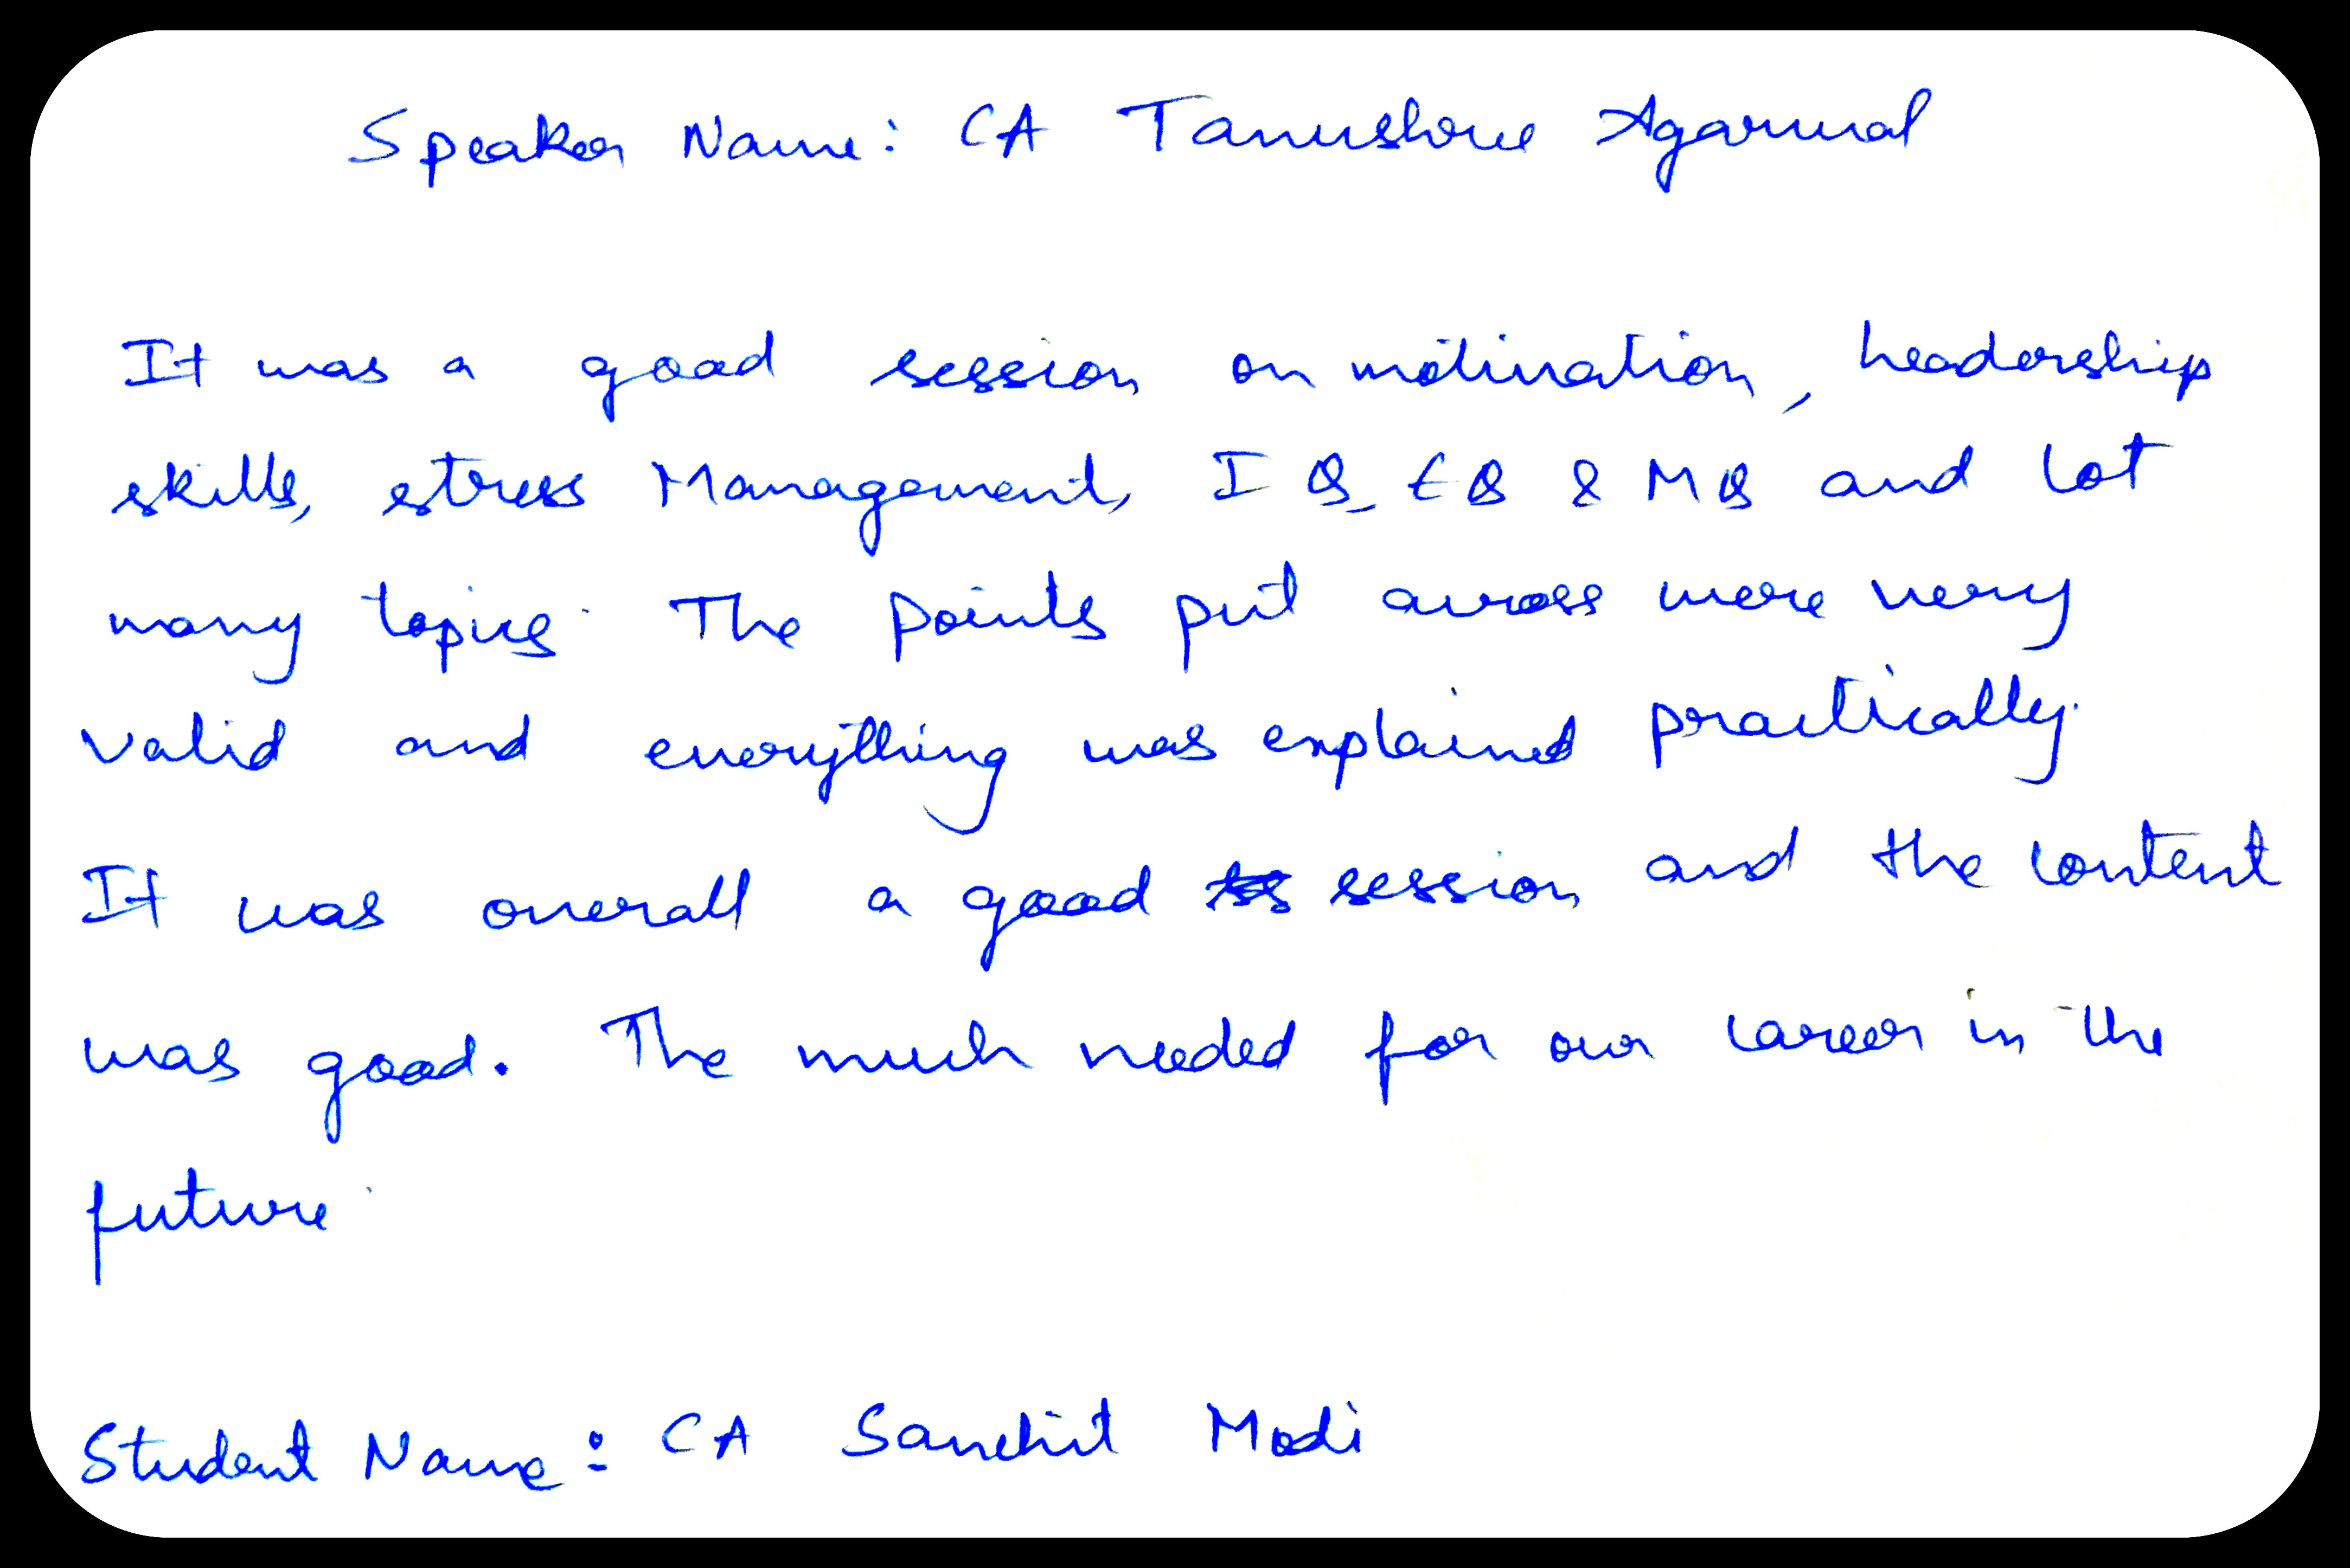 Speaker Name: CA Tanushree Agarwal
It was a good session on motivation, leadership
skills, stress Management, IQ, EQ & MQ and lot
many topics. The points put across were very
valid and everything was explained practically.
It was overall a good session and the content
was good. The much needed for our career in the
future.
Student Name: CA Sanchit Modi